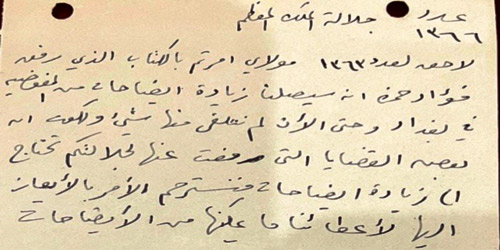 عدد جلالة الملك المعظم
١٣٦٦
لاحق لعدد ١٣٦٣ مولاي امرتم بالكتاب الذي رفق
فؤاد حمزه انه سيصلنا زيادة ايضاحات من المفوضيه
في بغداد وحتى الآن لم نتلقى منها شيئ ولكون ان
بعض القضايا التي رفعت عنها لجلالتكم تحتاج
الى زيادة ايضاحات فنسترحم الأمر بالأيعاز
اليها لأعطائنا ما يمكنها من الأيضاحات